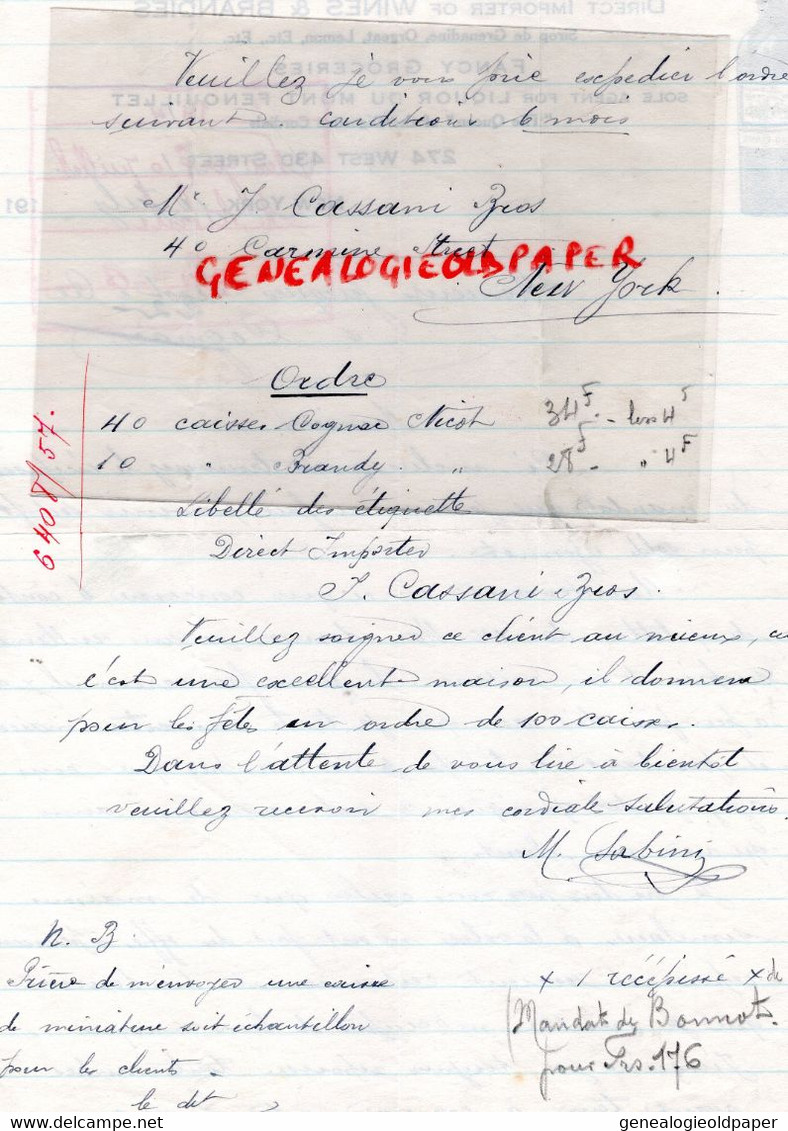 Veuillez je vous prie expedier l'ordre
suivant conditions 6 mois
Mr. J. Cassani Bros
40 Carmine Street
GENEALOGIEOLDPAPER
New York.
Ordre
40 caisses Cognac Nicot 34F. - less 4F
10 " Brandy. " 28F - " 4F
6408/57.
Libellé des étiquette
Direct Importer
J. Cassani Bros.
Veuillez soigner ce client au mieux, ca
c'est une excellente maison, il donnera
pour les fêtes un ordre de 100 caisses.
Dans l'attente de vous lire à bientot
veuillez recevoir mes cordiales salutations.
M. Sabini
N. B.
Prière de m'envoyer une caisse
de miniature soit échantillon
pour les clients.
le dit
x 1 récépissé x de
Mandat de Bonnot.
pour Frs. 176
DIRECT IMPORTER OF WINES & BRANDIES
Sirop de Grenadine, Orgeat, Lemon, Etc., Etc.
FANCY GROCERIES
SOLE AGENT FOR LIQUOR DU MONT FENOUILLET
274 WEST 43D STREET
191
delcampe.net
genealogieoldpaper